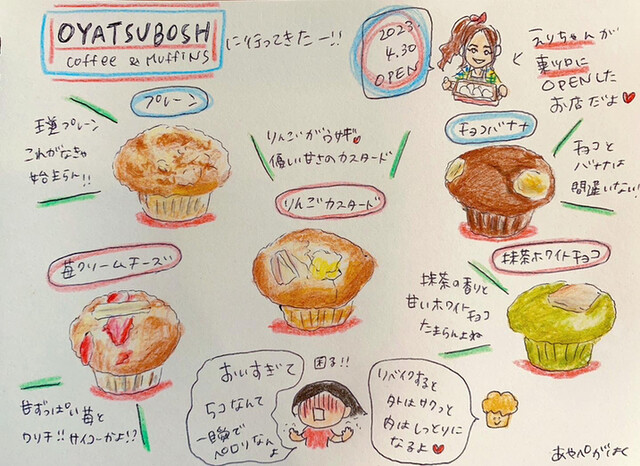 OYATSUBOSHI
coffee & MUFFINS
に行ってきたー!!
2023
4.30
OPEN
えりちゃんが
OPENした
お店だよ♥
プレーン
王道プレーン
これがなきゃ
始まらん!!
りんごがウサギ♥
優しい甘さのカスタード
りんごカスタード
チョコバナナ
チョコと
バナナは
間違いない!
苺クリームチーズ
甘ずっぱい苺と
クリチ!!サイコーかよ!?
抹茶ホワイトチョコ
抹茶の香りと
甘いホワイトチョコ
たまらんよね
おいすぎて
5コなんて
一瞬で
ペロリなんよ
困る!!
リベイクすると
外はサクっと
内はしっとりに
なるよ♥
あやぺがかく